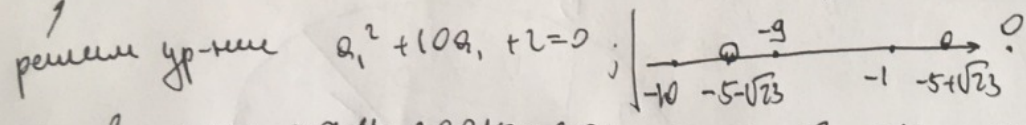 решим ур-ние a₁² + 10a₁ + 2 = 0 ;
-10 -5-√23 -9 -1 -5+√23 0